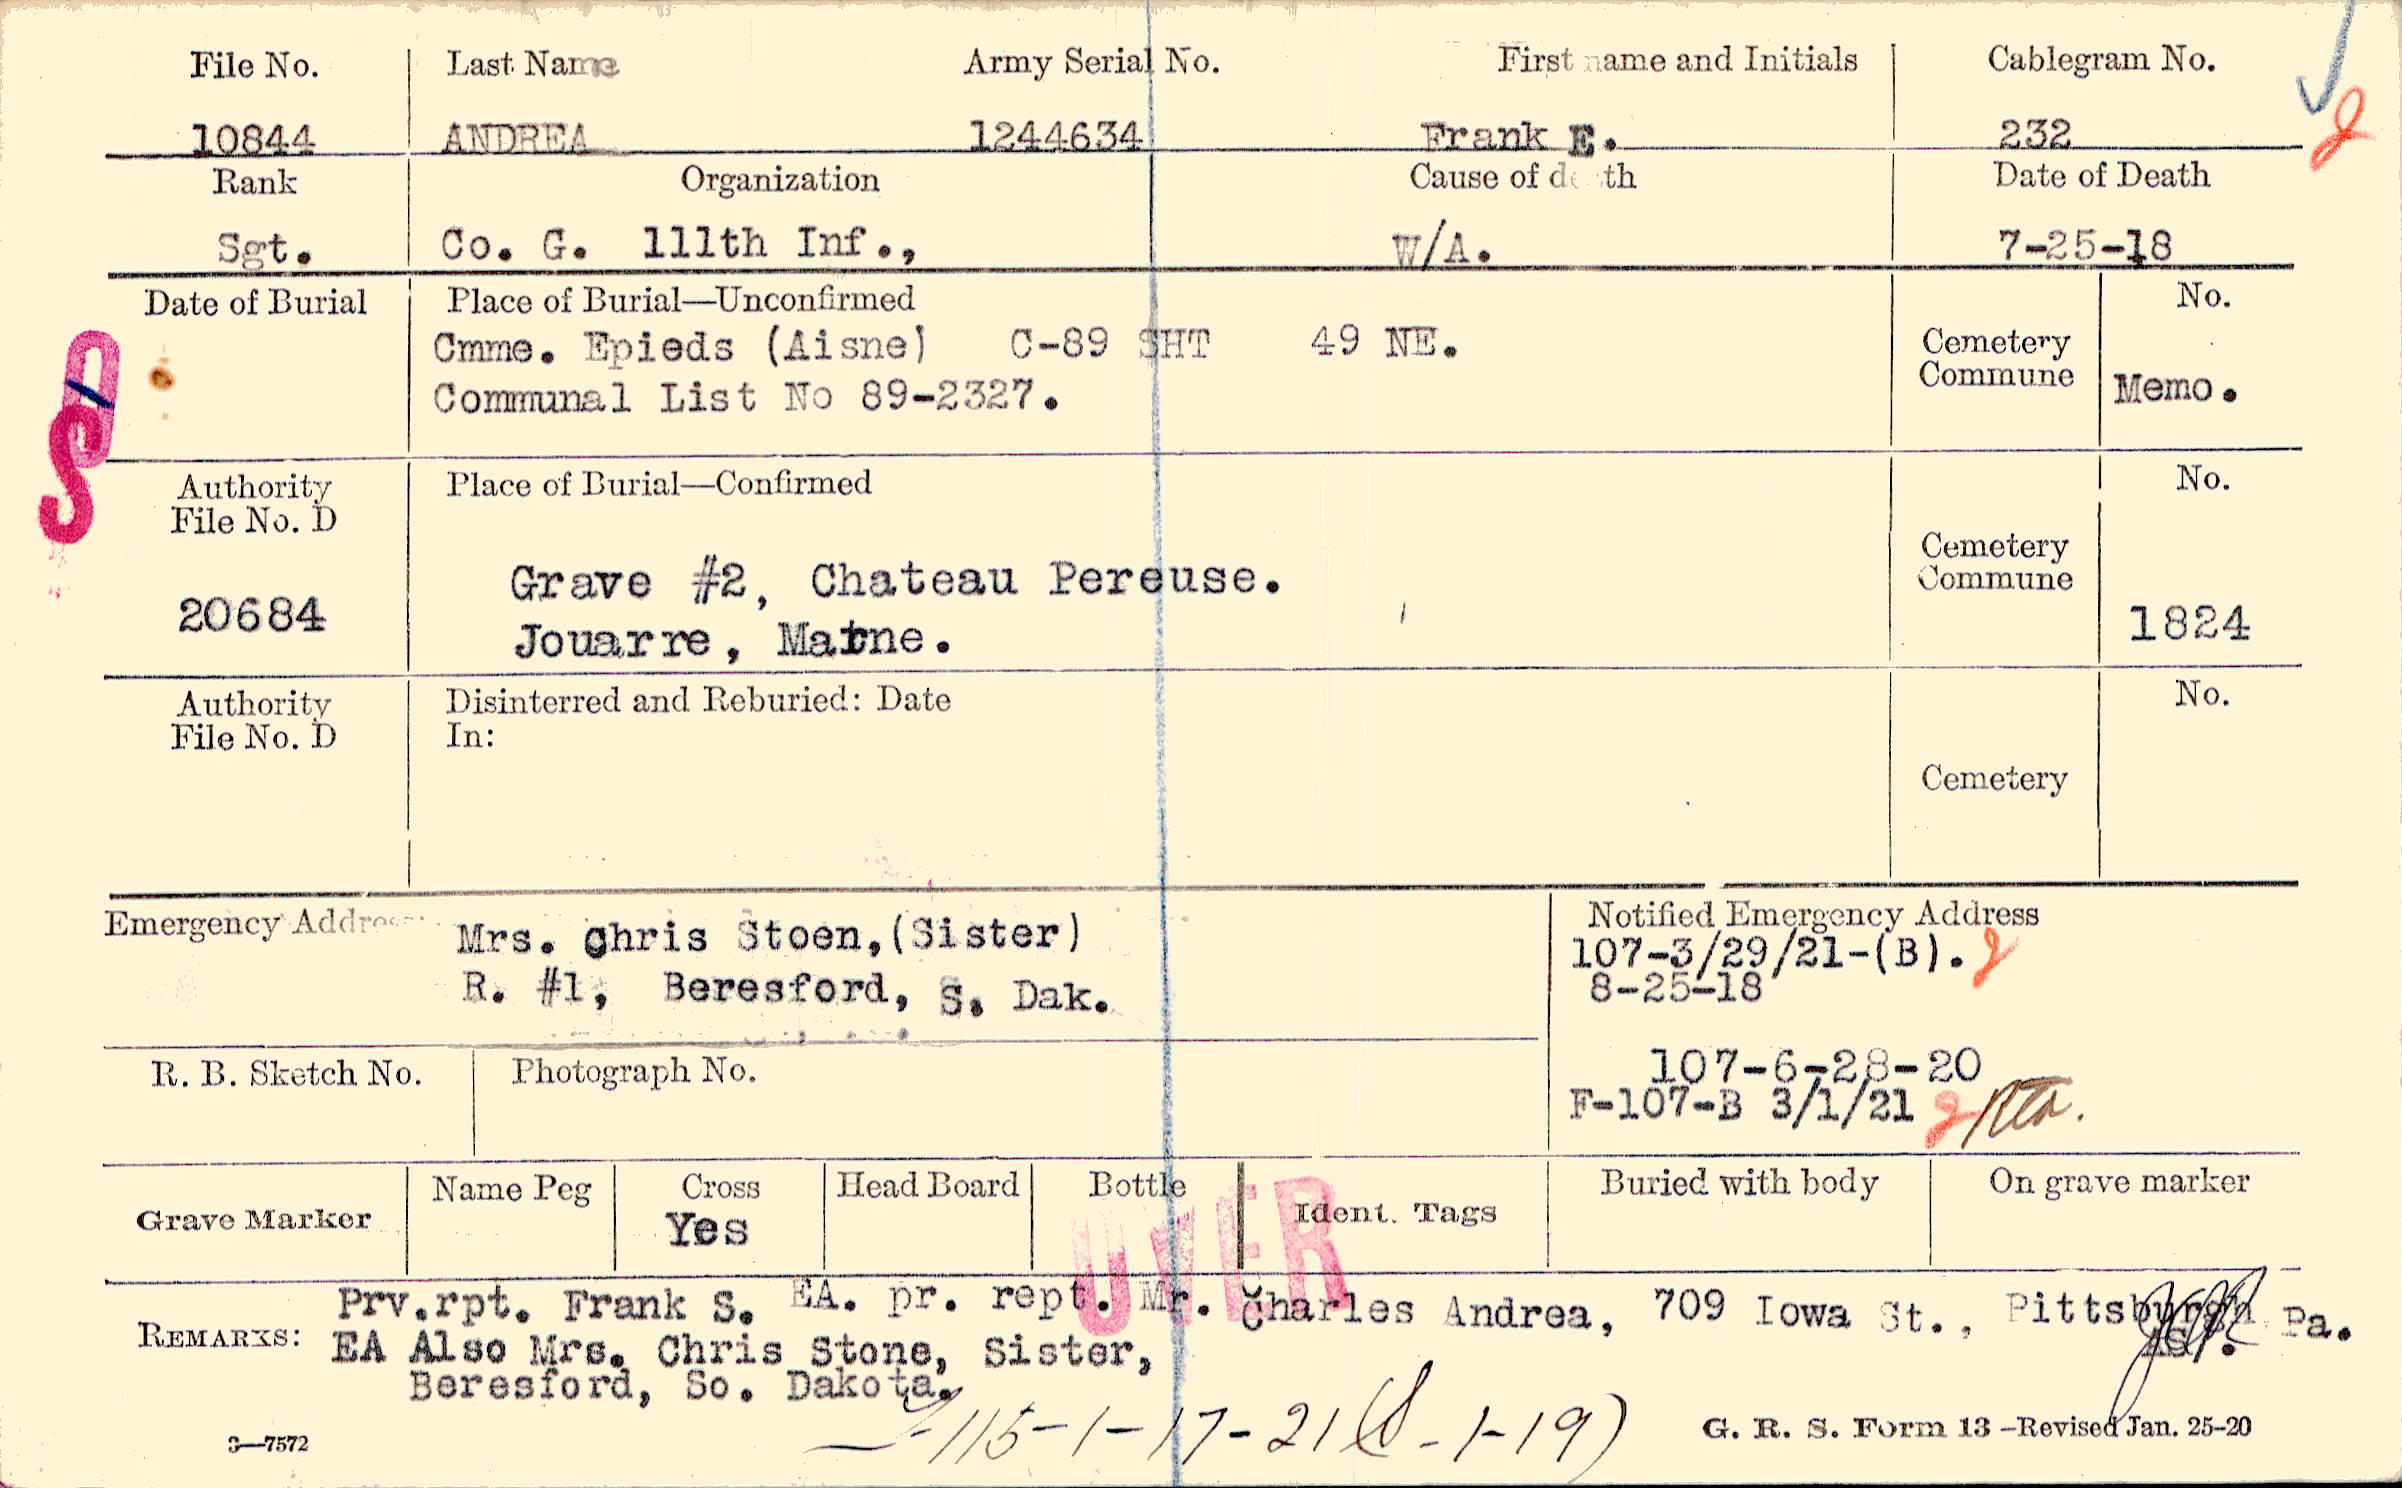 File No. Last Name Army Serial No. First name and Initials Cablegram No.
10844 ANDREA 1244634 Frank E. 232
Rank Organization Cause of death Date of Death
Sgt. Co. G. 111th Inf., W/A. 7-25-18
Date of Burial Place of Burial—Unconfirmed No.
Cmme. Epieds (Aisne) C-89 SHT 49 NE.
Cemetery
Commune Memo.
Communal List No 89-2327.
S
Authority Place of Burial—Confirmed No.
File No. D
Cemetery
Commune
Grave #2, Chateau Pereuse.
20684 1824
Jouarre, Marne.
Authority Disinterred and Reburied: Date No.
File No. D In:
Cemetery
Emergency Address Mrs. Chris Stoen,(Sister)
R. #1, Beresford, S. Dak.
Notified Emergency Address
107-3/29/21-(B).
8-25-18
107-6-28-20
F-107-B 3/1/21
R. B. Sketch No. Photograph No.
Grave Marker Name Peg Cross Head Board Bottle Ident. Tags Buried with body On grave marker
Yes
OVER
REMARKS: Prv.rpt. Frank S. EA. pr. rept. Mr. Charles Andrea, 709 Iowa St., Pittsburgh Pa.
EA Also Mrs. Chris Stone, Sister,
Beresford, So. Dakota.
-115-1-17-21 ( -1-19)
3—7572 G. R. S. Form 13 -Revised Jan. 25-20